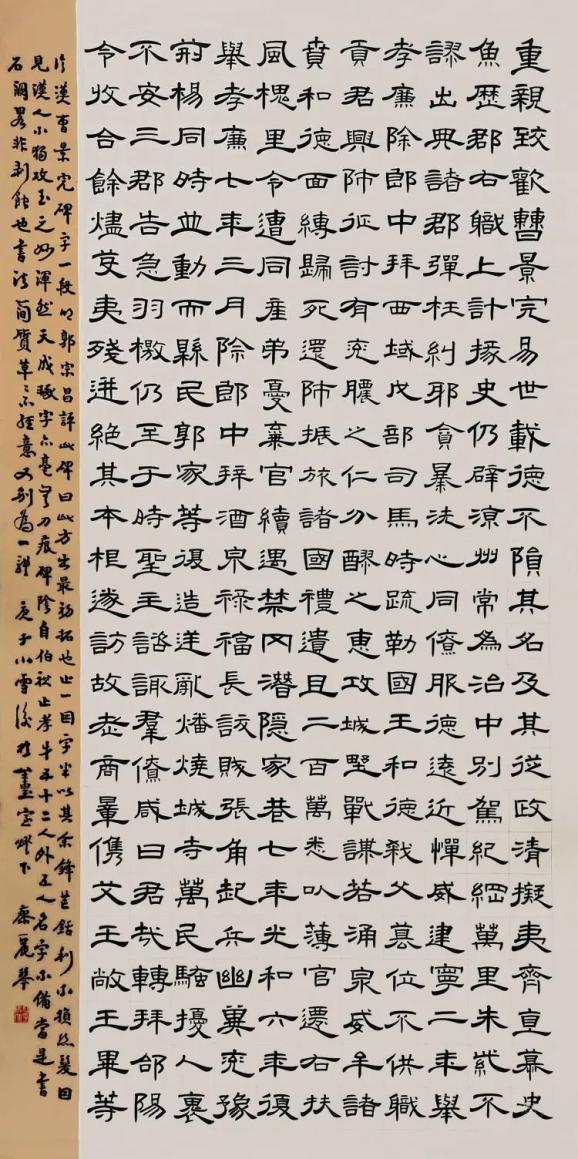 重親致歡曹景完易世載德不隕其名及其從政清擬夷齊直慕史
魚歷郡右職上計掾史仍辟涼州常為治中別駕紀綱萬里朱紫不
謬出典諸郡彈枉糾邪貪暴洗心同僚服德遠近憚威建寧二年舉
孝廉除郎中拜西域戊部司馬時疏勒國王和德弒父篡位不供職
貢君興師征討有兗膿之仁分醪之惠攻城野戰謀若涌泉威牟諸
賁和德面縛歸死還師振旅諸國禮遺且二百萬悉以薄官遷右扶
風槐里令遭同產弟憂棄官續遇禁冈潛隱家巷七年光和六年復
舉孝廉七年三月除郎中拜酒泉祿福長訞賊張角起兵幽冀兗豫
荊楊同時並動而縣民郭家等復造逆亂燔燒城寺萬民騷擾人裹
不安三郡告急羽檄仍至于時聖主諮諏羣僚咸曰君哉轉拜郃陽
令收合餘燼芟夷殘迸絕其本根遂訪故老商量儁艾王敞王畢等
漢曹景完碑字一段明郭宗昌評此碑曰此方出最初拓也止一因字半以其余鋒芒銛利不損絲髮因
見漢人不獨攻玉之妙渾然天成琢字亦毫無刀痕碑陰自伯祺止孝才五十二人外五人名字不備當是書
石闕畧非剥蝕也書法簡質草草不經意又別為一種 庚子小雪後於室燈下 秦麗琴